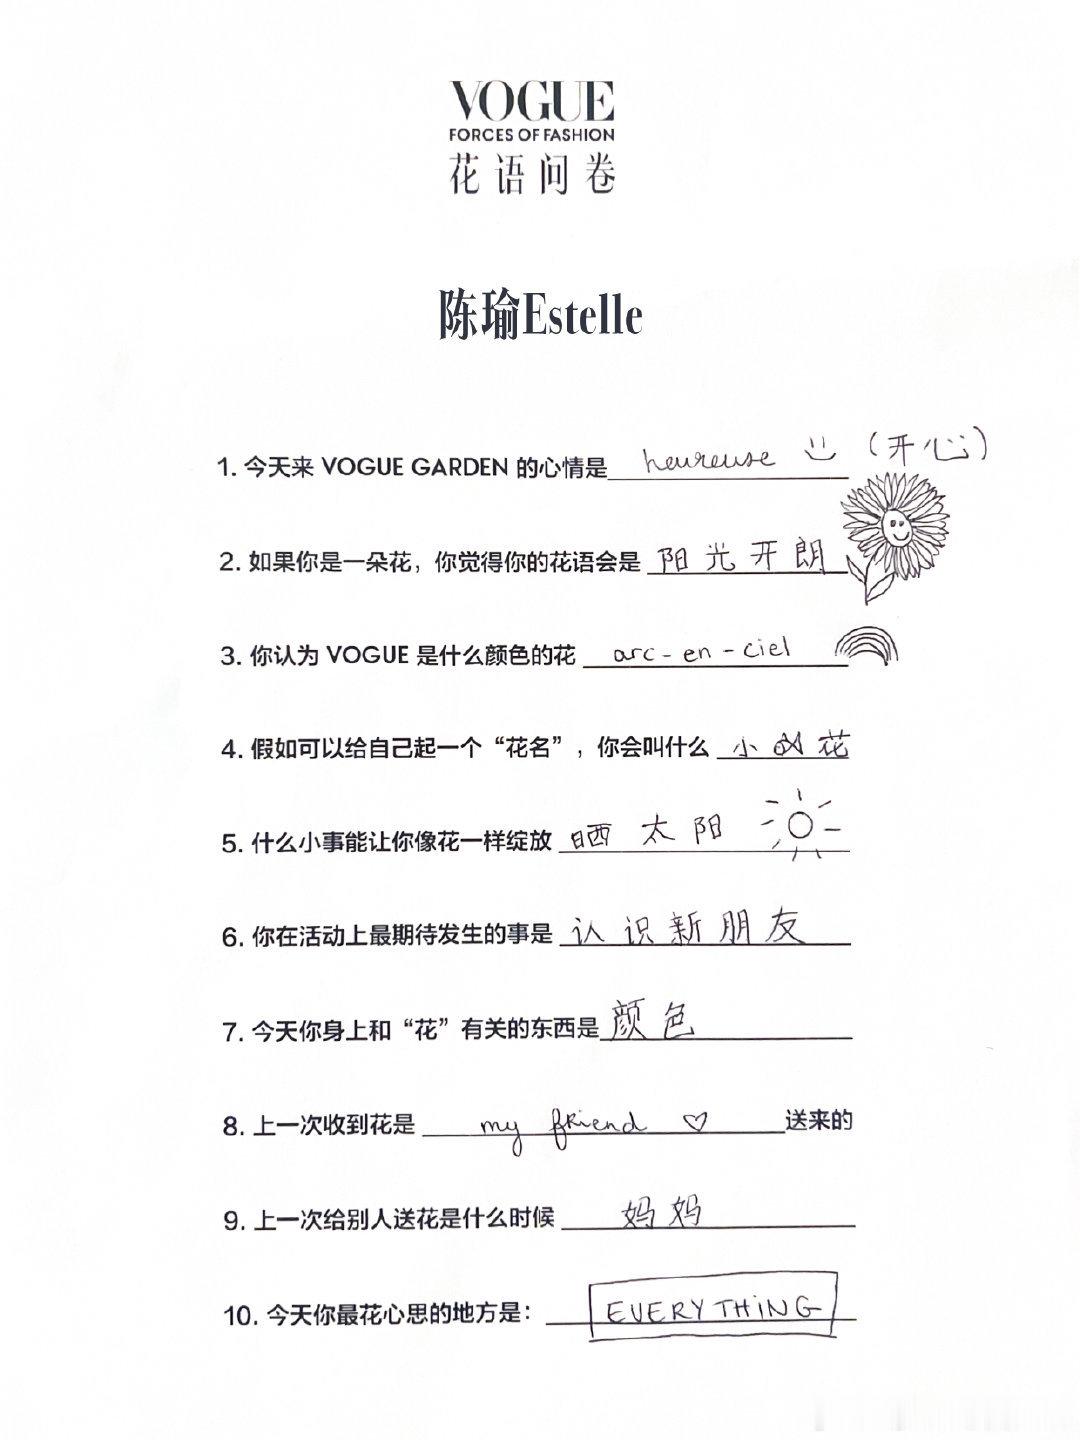 VOGUE
FORCES OF FASHION
花语问卷
陈瑜Estelle
1. 今天来 VOGUE GARDEN 的心情是 heureuse （开心）
2. 如果你是一朵花，你觉得你的花语会是 阳光开朗
3. 你认为 VOGUE 是什么颜色的花 arc-en-ciel
4. 假如可以给自己起一个“花名”，你会叫什么 小 花
5. 什么小事能让你像花一样绽放 晒太阳
6. 你在活动上最期待发生的事是 认识新朋友
7. 今天你身上和“花”有关的东西是 颜色
8. 上一次收到花是 my friend ♡ 送来的
9. 上一次给别人送花是什么时候 妈妈
10. 今天你最花心思的地方是： EVERYTHING